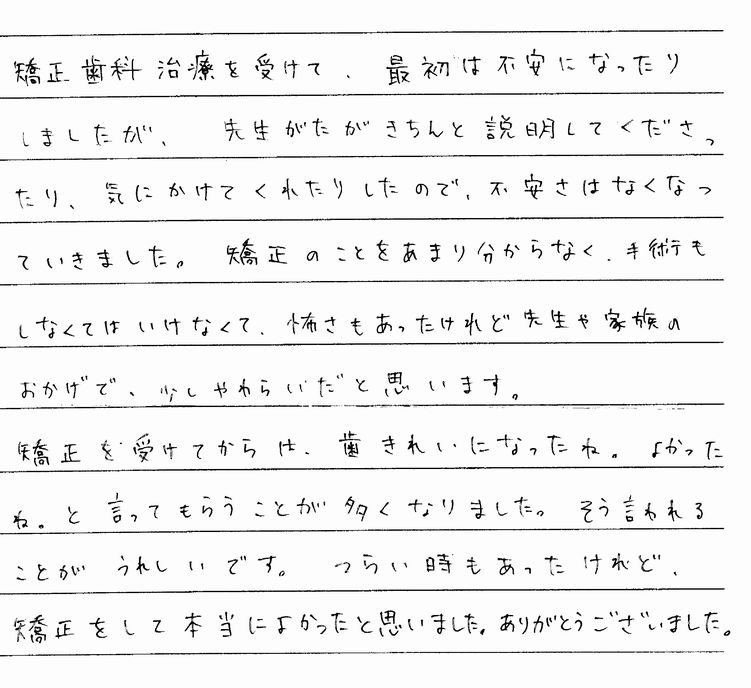 矯正歯科治療を受けて、最初は不安になったり
しましたが、先生がたがきちんと説明してくださっ
たり、気にかけてくれたりしたので、不安さはなくなっ
ていきました。矯正のことをあまり分からなく、手術も
しなくてはいけなくて、怖さもあったけれど先生や家族の
おかげで、少しやわらいだと思います。
矯正を受けてからは、歯きれいになったね。よかった
ね。と言ってもらうことが多くなりました。そう言われる
ことがうれしいです。つらい時もあったけれど、
矯正をして本当によかったと思いました。ありがとうございました。